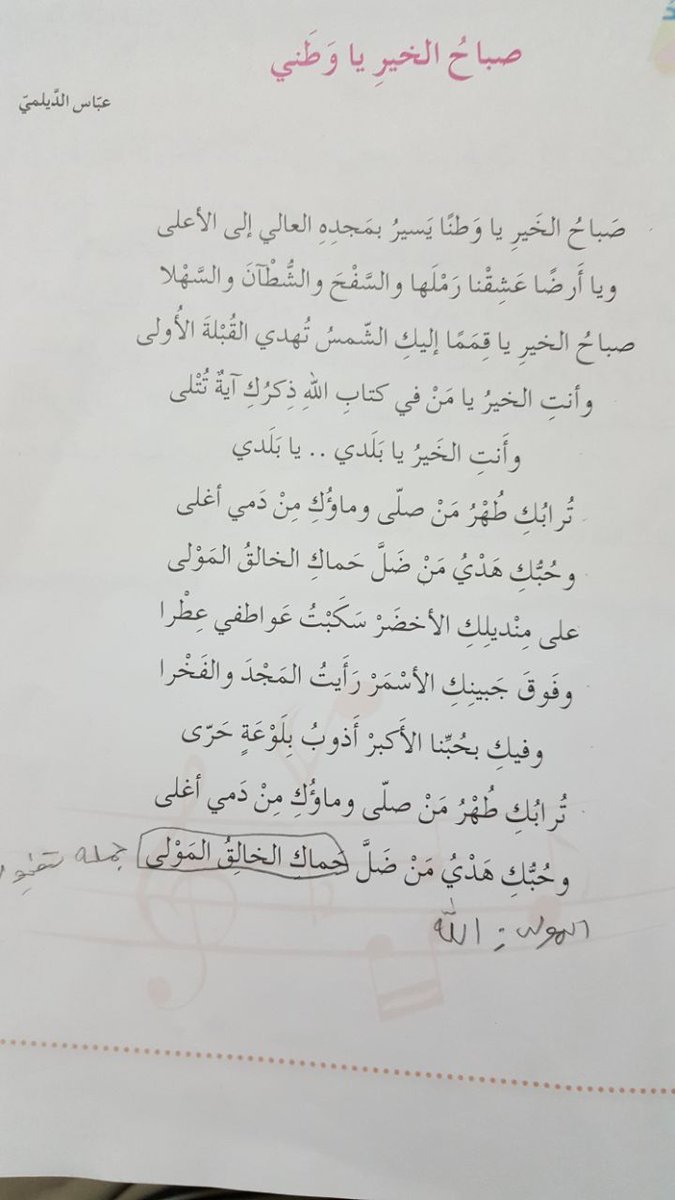 صباحُ الخيرِ يا وَطَني
عبّاس الدَّيلميّ
صَباحُ الخَيرِ يا وَطنًا يَسيرُ بمَجدِهِ العالي إلى الأعلى
ويا أَرضًا عَشِقْنا رَمْلَها والسَّفْحَ والشُّطْآنَ والسَّهْلا
صباحُ الخيرِ يا قِمَمًا إليكِ الشّمسُ تُهدي القُبْلةَ الأُولى
وأنتِ الخيرُ يا مَنْ في كتابِ اللهِ ذِكرُكِ آيةٌ تُتْلى
وأَنتِ الخَيرُ يا بَلَدي .. يا بَلَدي
تُرابُكِ طُهْرُ مَنْ صلّى وماؤُكِ مِنْ دَمي أغلى
وحُبُّكِ هَدْيُ مَنْ ضَلَّ حَماكِ الخالقُ المَوْلى
على مِنْديلِكِ الأخضَرْ سَكَبْتُ عَواطفي عِطْرا
وفَوقَ جَبينِكِ الأسْمَرْ رَأَيتُ المَجْدَ والفَخْرا
وفيكِ بحُبِّنا الأَكبرْ أَذوبُ بِلَوْعَةٍ حَرّى
تُرابُكِ طُهْرُ مَنْ صلّى وماؤُكِ مِنْ دَمي أغلى
وحُبُّكِ هَدْيُ مَنْ ضَلَّ حَماكِ الخالِقُ المَوْلى جملة
المولى : الله